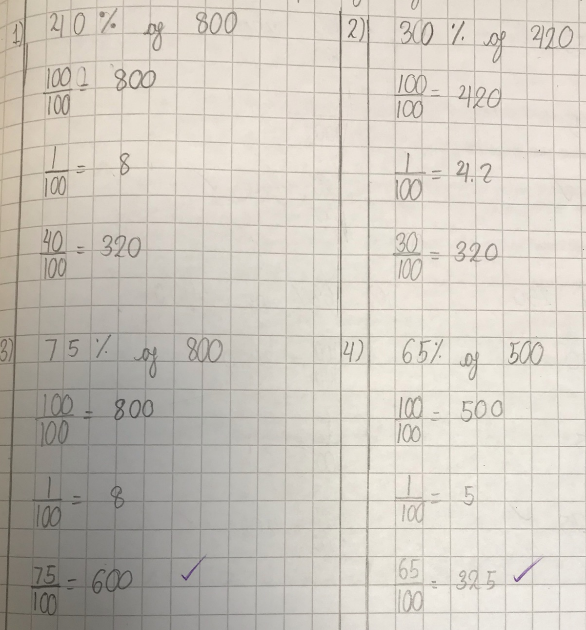 1) 40% of 800
100/100 = 800
1/100 = 8
40/100 = 320
2) 30% of 420
100/100 = 420
1/100 = 4.2
30/100 = 320
3) 75% of 800
100/100 = 800
1/100 = 8
75/100 = 600 ✓
4) 65% of 500
100/100 = 500
1/100 = 5
65/100 = 325 ✓